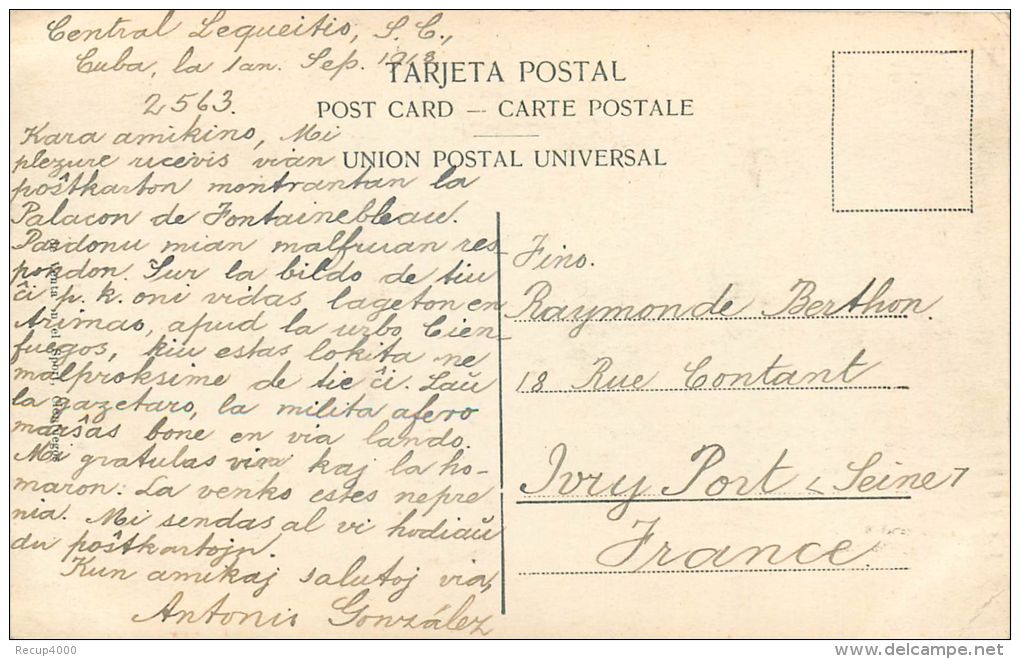 Central Lequeitio, S. C.,
Cuba, la 1an. Sep. 1918
TARJETA POSTAL
2563.
POST CARD — CARTE POSTALE
UNION POSTAL UNIVERSAL
Kara amikino, Mi
plezure ricevis vian
poŝtkarton montrantan la
Palacon de Fontainebleau.
Pardonu mian malfruan res-
pondon. Sur la bildo de tiu
ĉi p. k. oni vidas lageton en
Arimao, apud la urbo Cien-
fuegos, kiu estas lokita ne
malproksime de tie ĉi. Laŭ
la gazetaro, la milita afero
marŝas bone en via lando.
Mi gratulas vin kaj la ho-
maron: La venko estes nepre
nia. Mi sendas al vi hodiaŭ
du poŝtkartojn.
Kun amikaj salutoj via,
Antonio González
Fino.
Raymonde Berthon.
18 Rue Contant
Ivry Port (Seine)
France.
Recup4000
delcampe.net